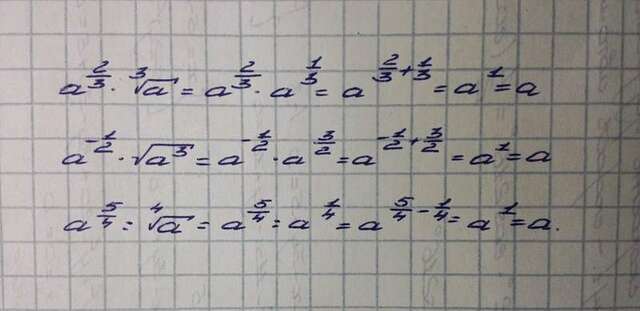 a^{2/3} · ∛a = a^{2/3} · a^{1/3} = a^{2/3 + 1/3} = a^1 = a
a^{-1/2} · √a^3 = a^{-1/2} · a^{3/2} = a^{-1/2 + 3/2} = a^1 = a
a^{5/4} : ∜a = a^{5/4} : a^{1/4} = a^{5/4 - 1/4} = a^1 = a.